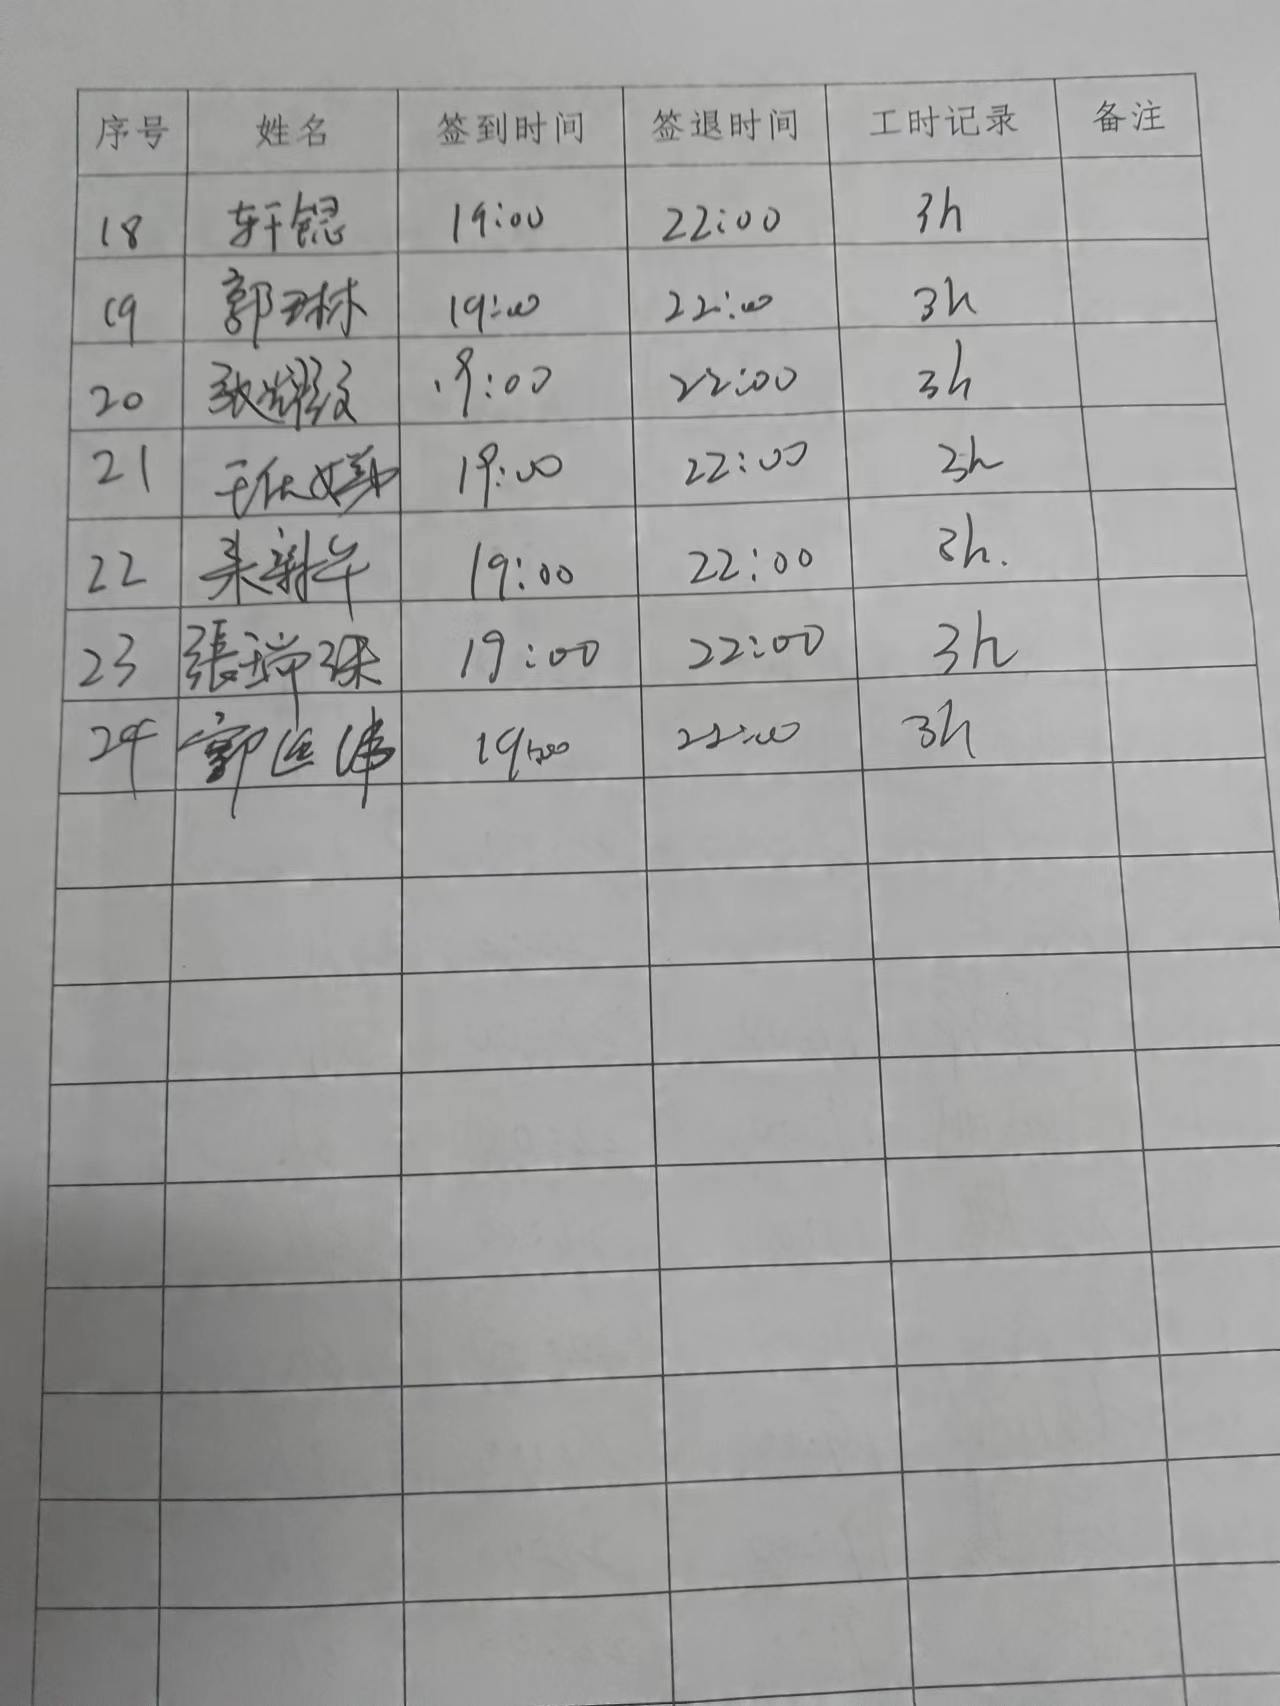 序号 姓名 签到时间 签退时间 工时记录 备注
18 轩锶 19:00 22:00 3h
19 郭琳 19:00 22:00 3h
20 19:00 22:00 3h
21 19:00 22:00 3h
22 19:00 22:00 3h.
23 張瑞珠 19:00 22:00 3h
24 19:00 22:00 3h